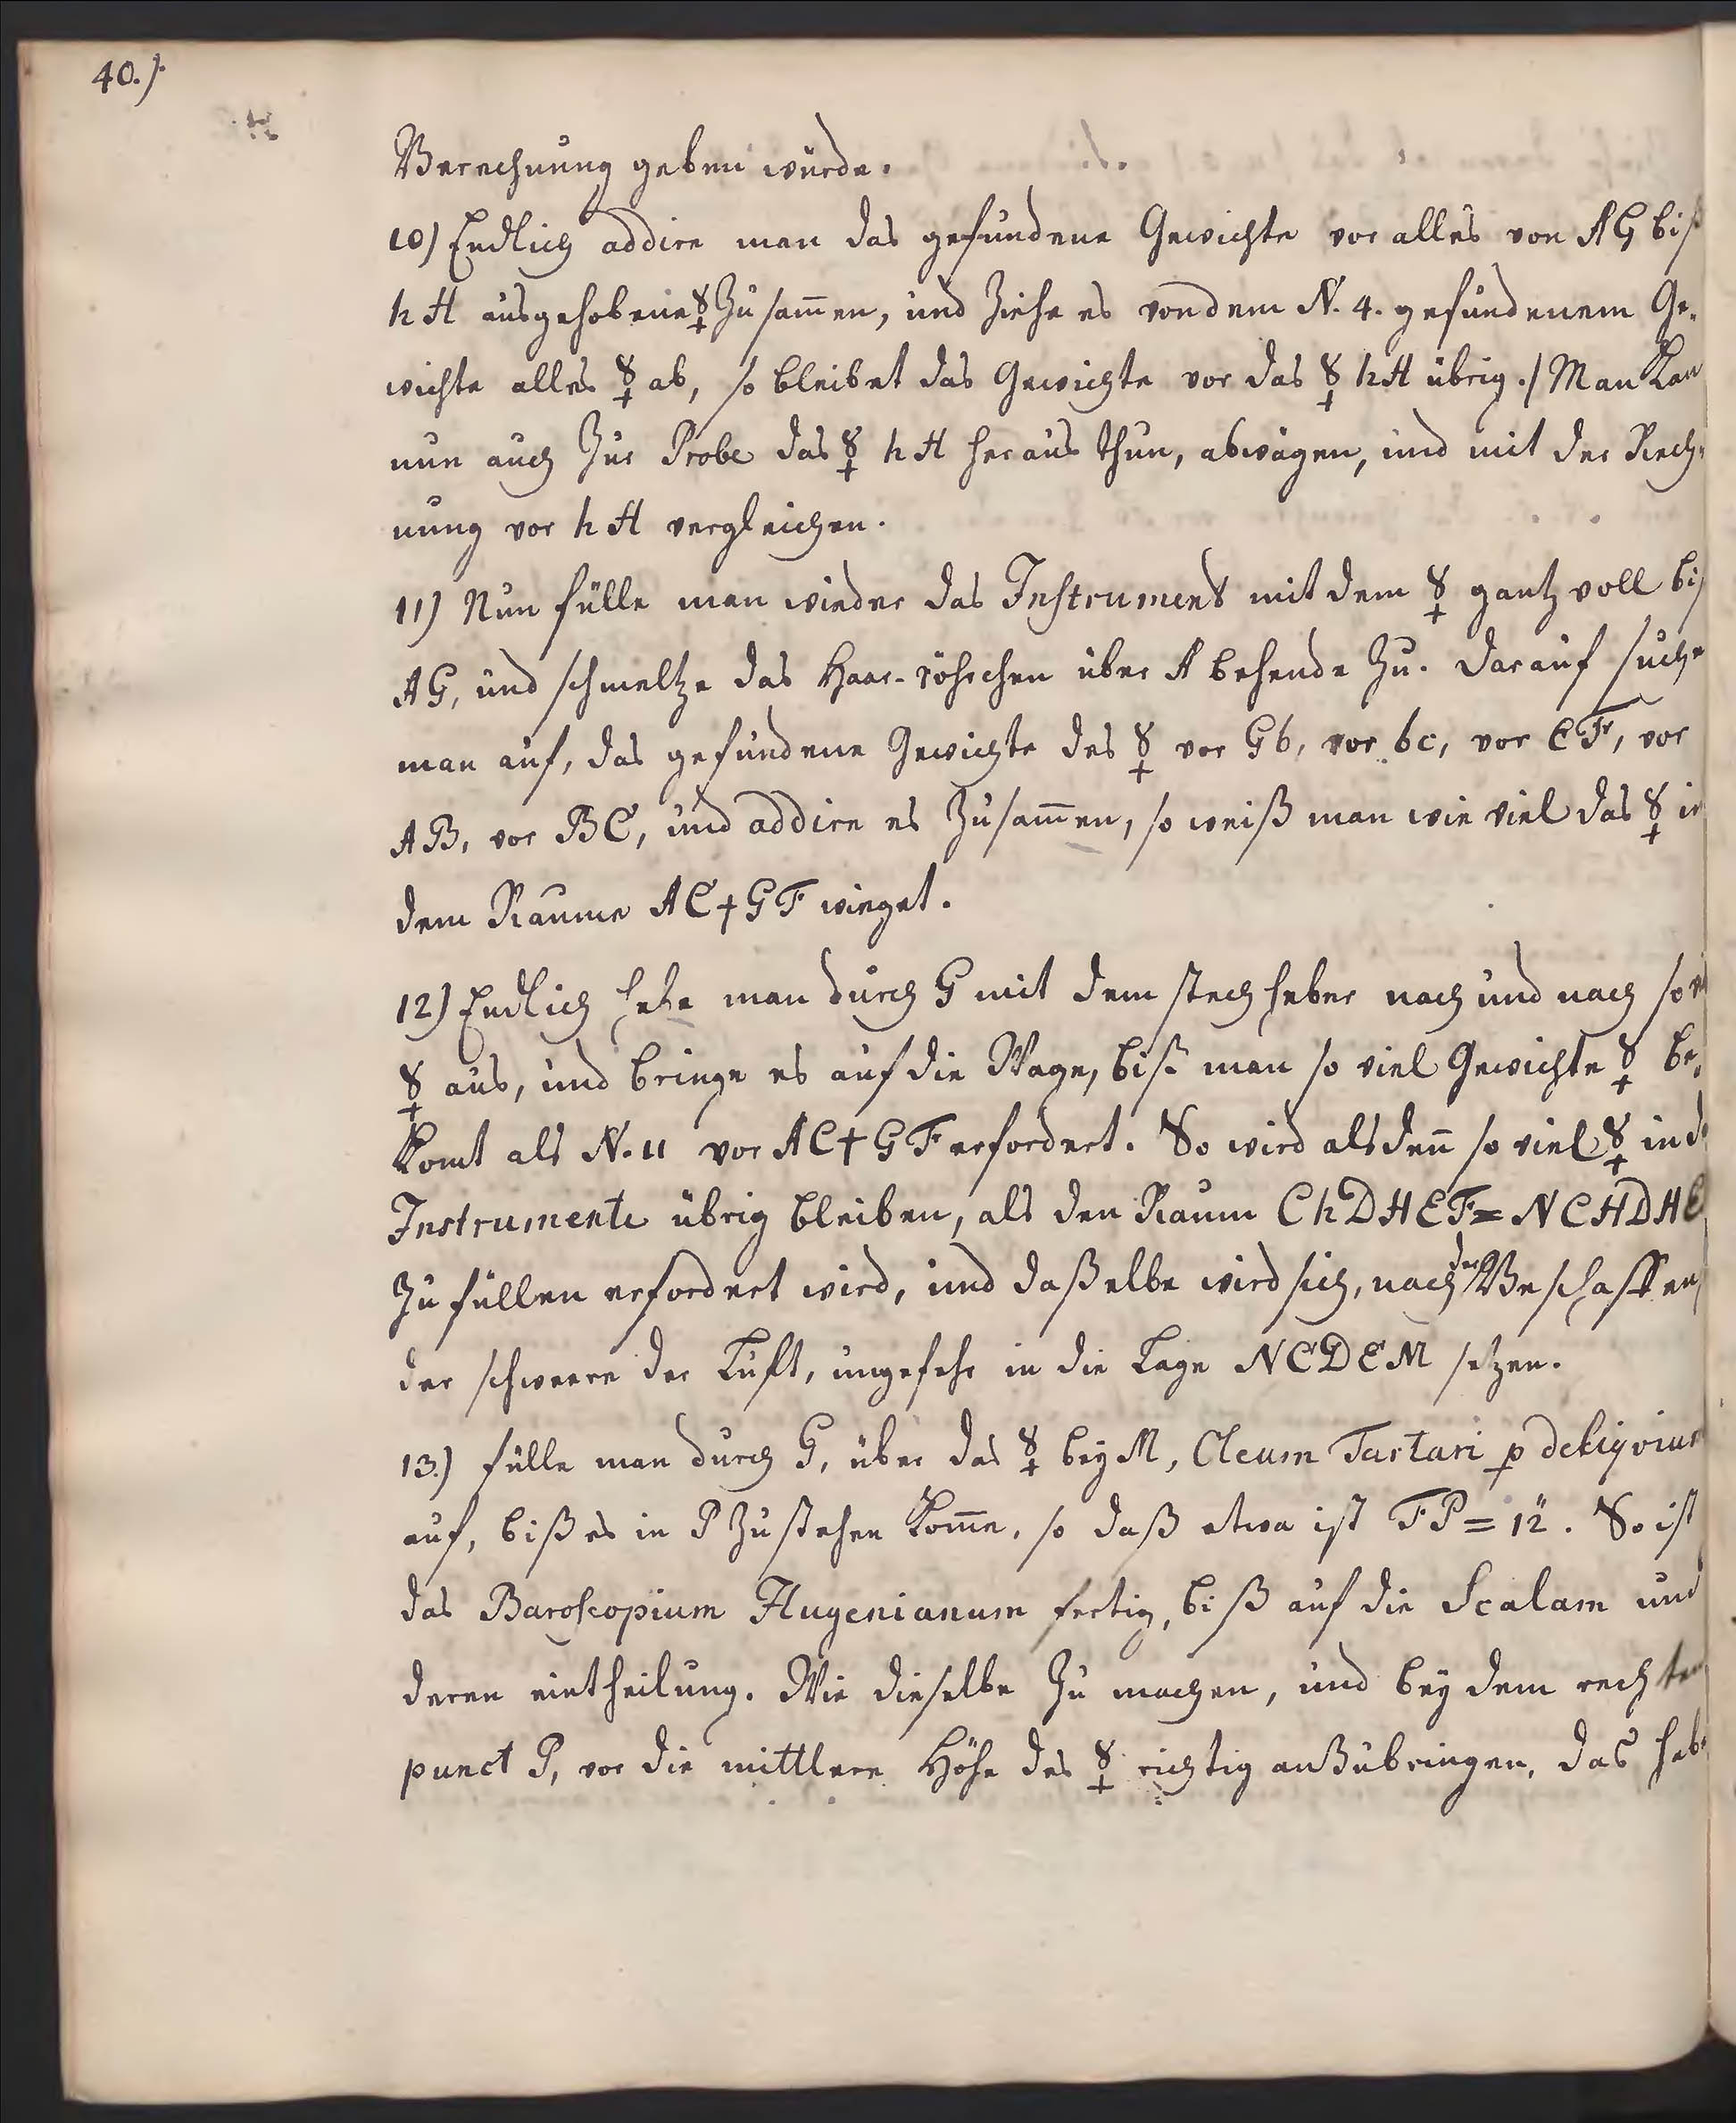 40.)
Berechnung geben würde.
10) Endlich addire man das gefundene Gewichte vor alles von AG biß
hH ausgehobene ☿ zusam̅en, und ziehe es von dem N. 4. gefundenem Ge-
wichte alles ☿ ab, so bleibet das Gewichte vor das ☿ hH übrig./ Man kan
nun auch zur Probe das ☿ hH heraus thun, abwägen, und mit der Rech-
nung vor hH vergleichen.
11) Nun fülle man wieder das Instrument mit dem ☿ gantz voll biß
AG, und schmeltze das Haar-röhrchen über A behende zu. Darauf suche
man auf, das gefundene Gewichte des ☿ vor Gb, vor bc, vor EF, vor
AB, vor BC, und addire es zusam̅en, so weiß man wie viel das ☿ in
dem Raume AC+GF wieget.
12) Endlich hebe man durch G mit dem stech heber nach und nach so viel
☿ aus, und bringe es auf die Wage, biß man so viel Gewichte ☿ be-
komt als N. 11 vor AC+GF erfordert. So wird alsden̅ so viel ☿ in
Instrumente übrig bleiben, als den Raum ChDHEF=NCHDHE
zu füllen erfordert wird, und daßelbe wird sich, nach der Beschaffen
der schweere der Luft, ungefehr in die Lage NCDEM setzen.
13.) fülle man durch G, über das ☿ bey M, Oleum Tartari p deliqvium
auf, biß es in P zu stehen kom̅e, so daß etwa ist FP=12". So ist
das Baroscopium Hugenianum fertig, biß auf die Scalam und
deren eintheilung. Wie dieselbe zu machen, und bey dem rechten
punct P, vor die mittlere Höhe des ☿ richtig anzubringen, das habe